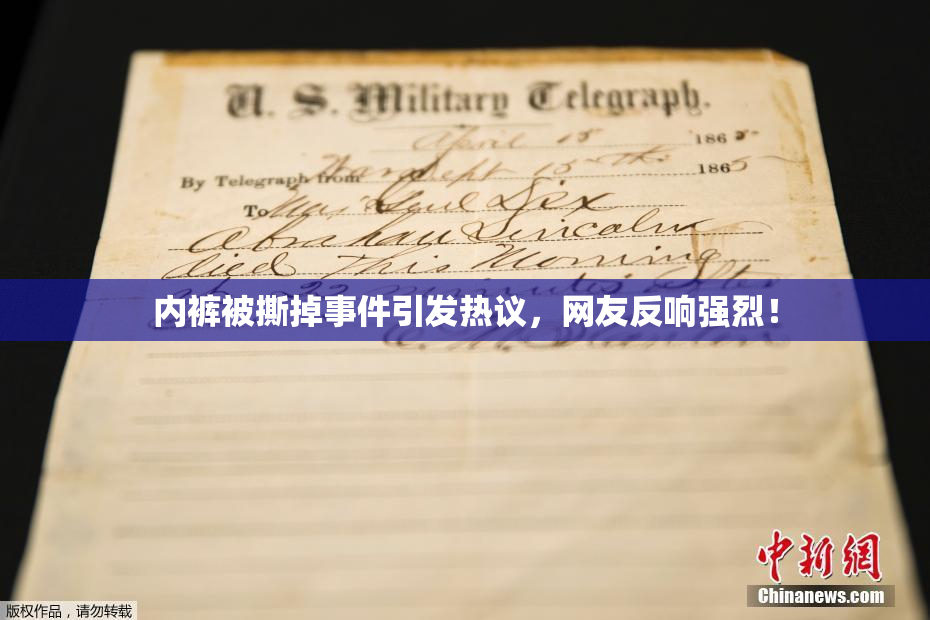 U. S. Military Telegraph.
April 15 1865
By Telegraph from War Dept 15th 1865
To Maj Genl Dix
Abraham Lincoln
died This Morning
at 22 minutes after
内裤被撕掉事件引发热议，网友反响强烈！
中新网
Chinanews.com
版权作品，请勿转载